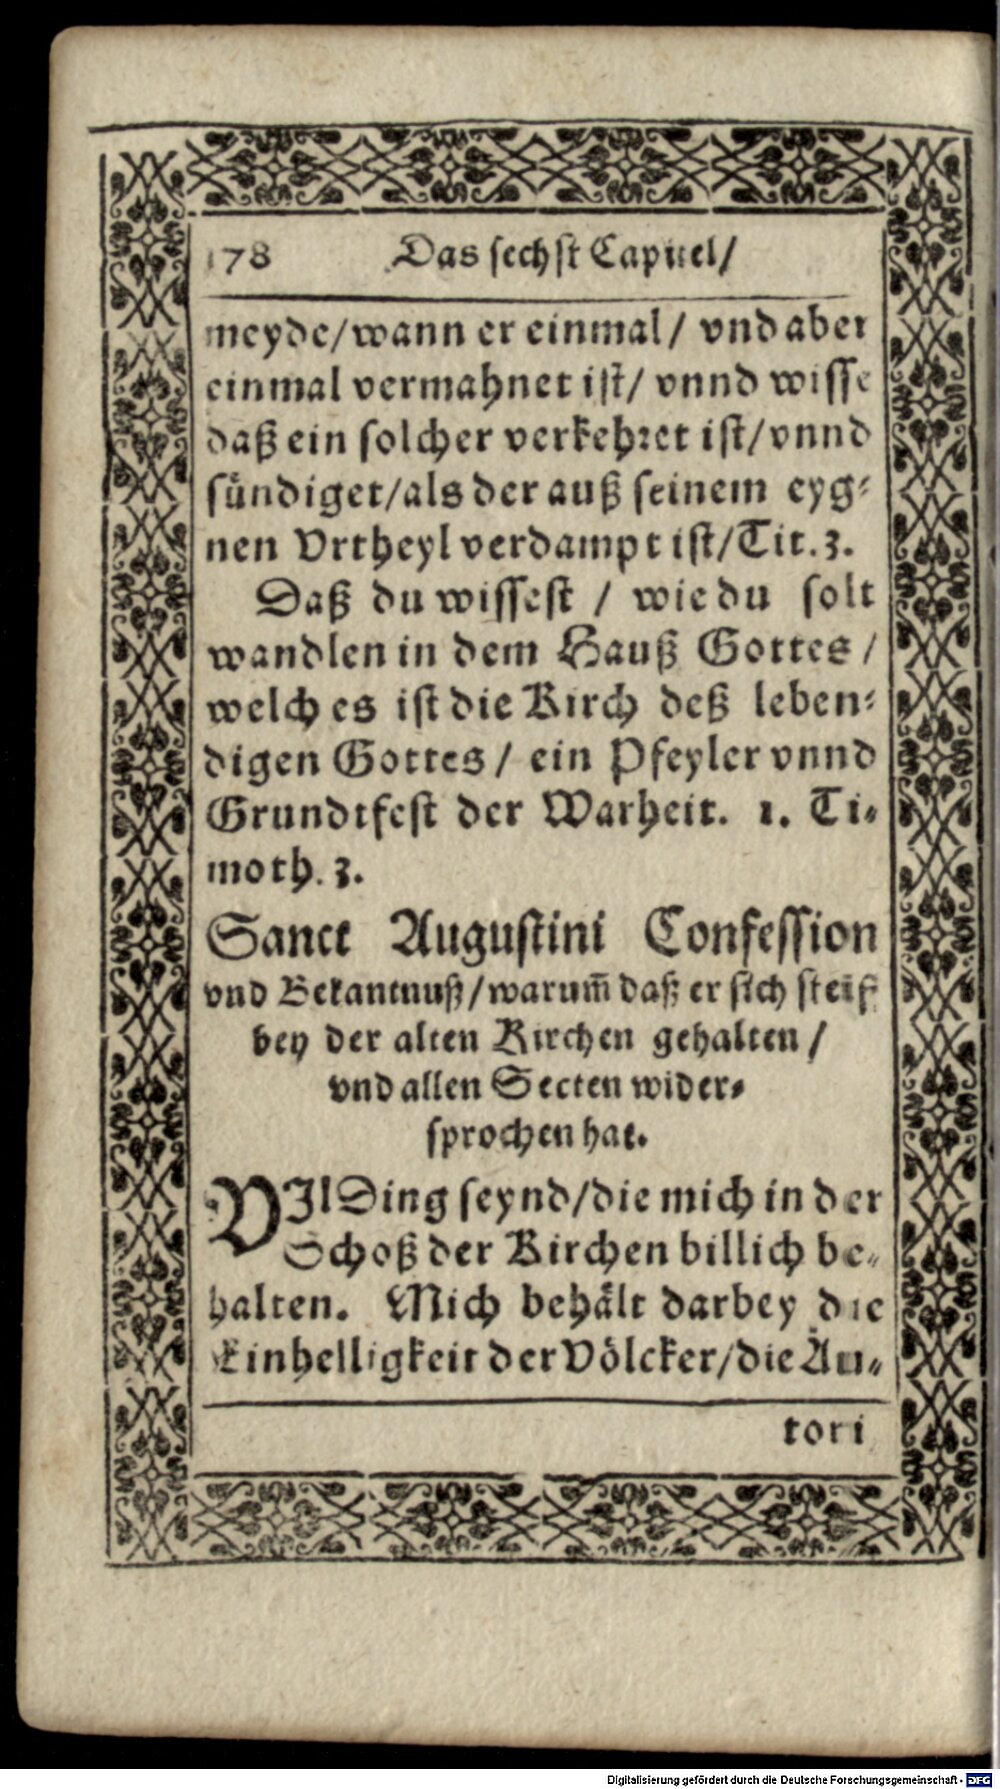 178 Das sechst Capitel/
meyde/wann er einmal/ vnd aber
einmal vermahnet ist/ vnnd wisse
daß ein solcher verkehret ist/vnnd
sündiget/als der auß seinem eyg-
nen Vrtheyl verdampt ist/Tit.3.
Daß du wissest / wie du solt
wandlen in dem Hauß Gottes /
welches ist die Kirch deß leben-
digen Gottes / ein Pfeyler vnnd
Grundtfest der Warheit. 1. Ti-
moth. 3.
Sanct Augustini Confession
vnd Bekantnuß/warum̃ daß er sich steif
bey der alten Kirchen gehalten /
vnd allen Secten wider-
sprochen hat.
VIl Ding seynd/die mich in der
Schoß der Kirchen billich be-
halten. Mich behält darbey die
Einhelligkeit der Völcker/die Au-
tori
Digitalisierung gefördert durch die Deutsche Forschungsgemeinschaft - DFG